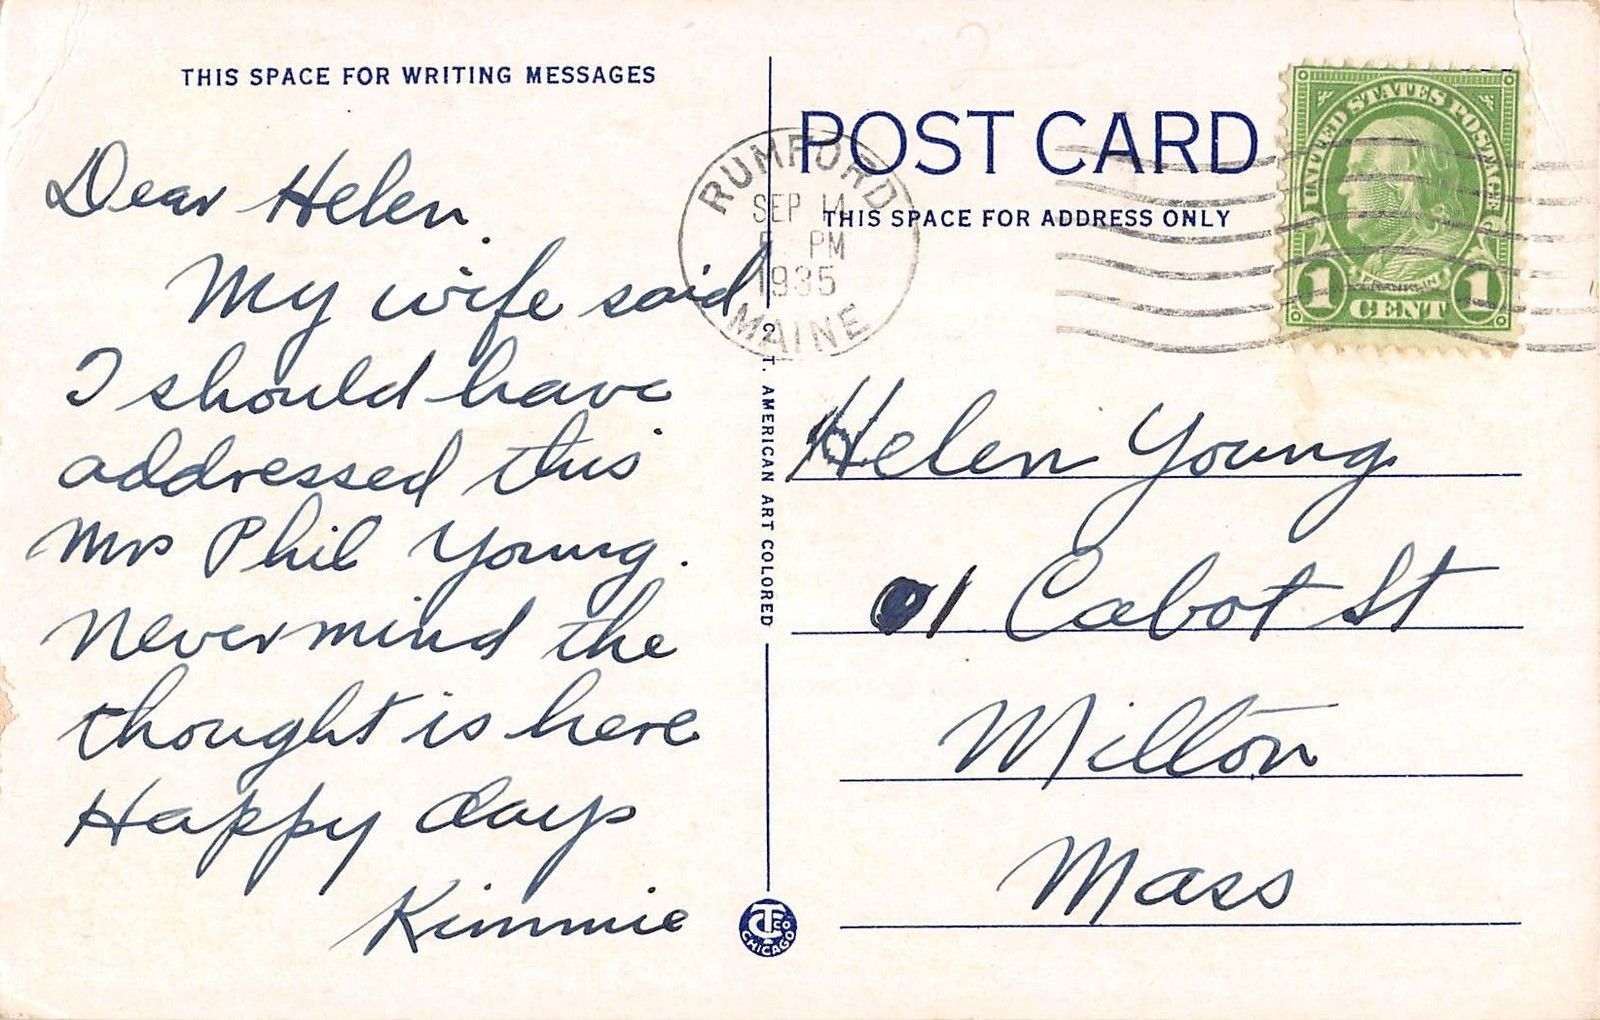 THIS SPACE FOR WRITING MESSAGES
Dear Helen.
My wife said
I should have
addressed this
Mrs Phil Young.
Never mind the
thought is here
Happy days
Kimmie
C. T. AMERICAN ART COLORED
CTCO.
CHICAGO
POST CARD
THIS SPACE FOR ADDRESS ONLY
RUMFORD
SEP 14
PM
1935
MAINE
UNITED STATES POSTAGE
FRANKLIN
1 CENT 1
Helen Young
1 Cabot St
Milton
Mass